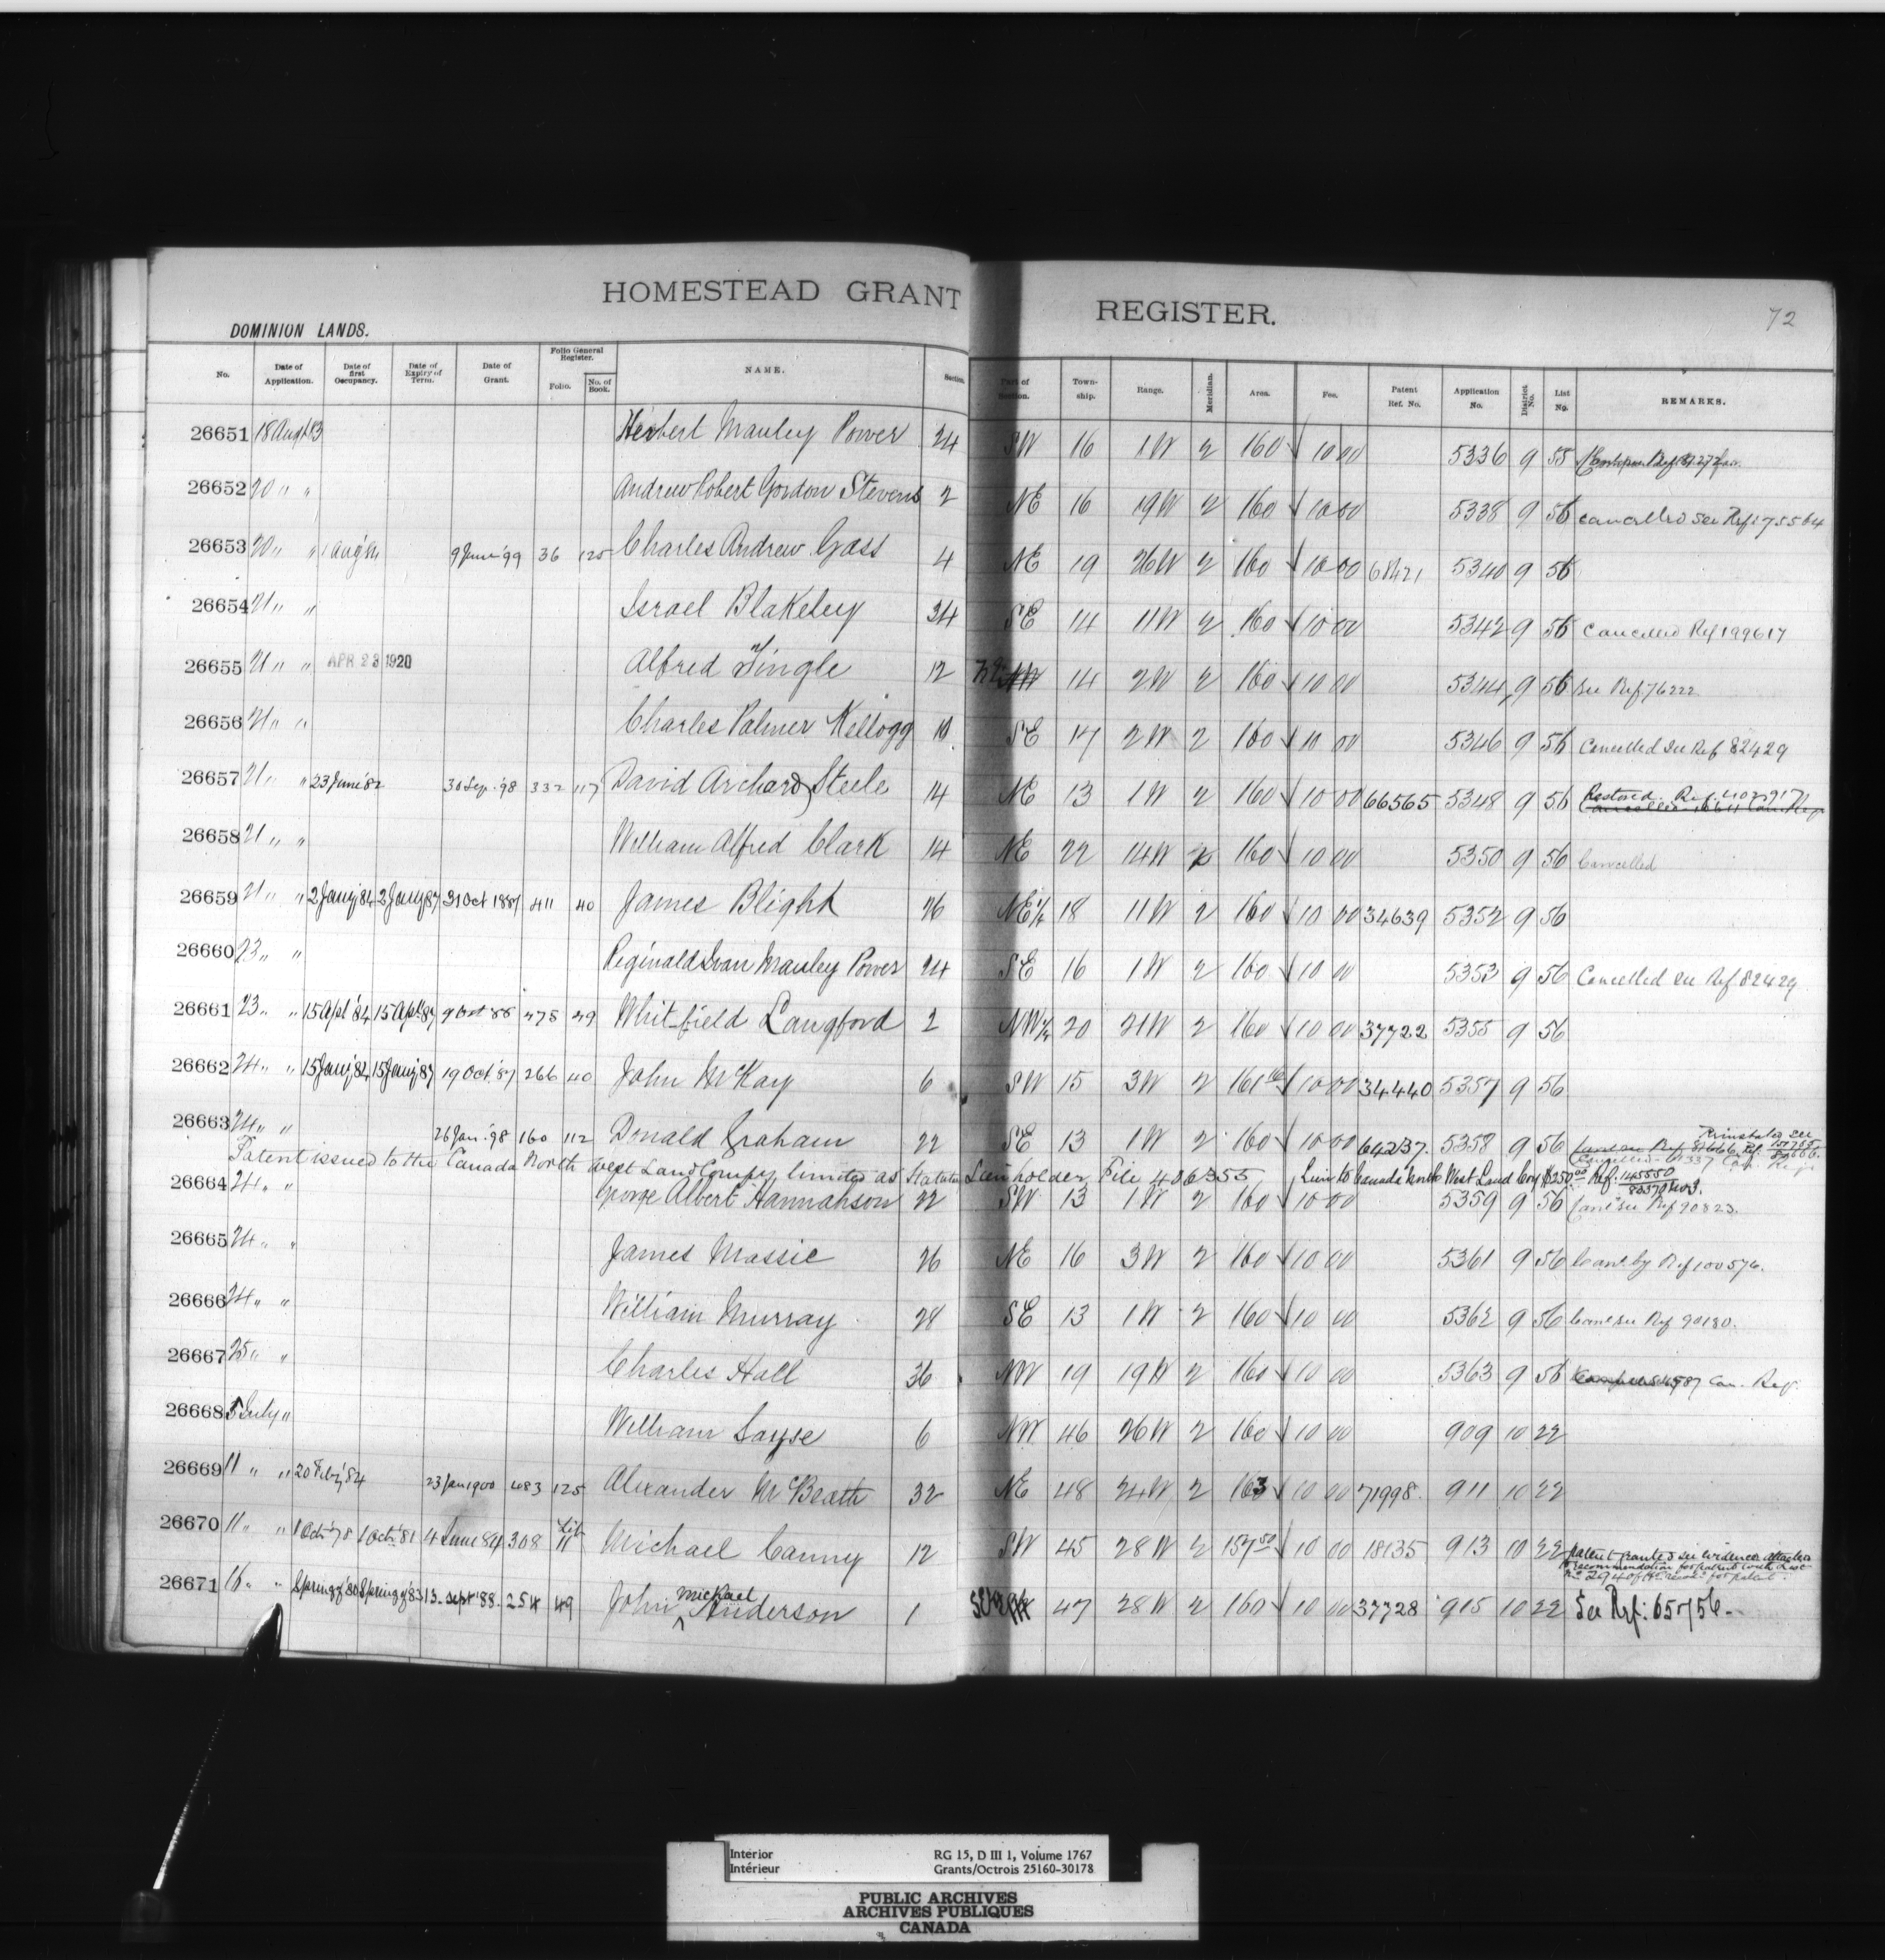 HOMESTEAD GRANT REGISTER.
72
DOMINION LANDS.
No. Date of Application. Date of first Occupancy. Date of Expiry of Term. Date of Grant. Folio General Register. Folio. No. of Book. NAME. Section. Part of Section. Township. Range. Meridian. Area. Fee. Patent Ref. No. Application No. District No. List No. REMARKS.
26651 18 Augt 83 Herbert Manley Power 24 SW 16 1W 2 160 10 00 5336 9 55
26652 20 " " Andrew Robert Gordon Stevens 2 NE 16 19W 2 160 10 00 5338 9 56 Cancelled See Ref: 75564
26653 20 " " 9 June '99 36 125 Charles Andrew Gass 4 NE 19 26W 2 160 10 00 68421 5340 9 56
26654 21 " " Israel Blakeley 34 SE 14 11W 2 160 10 00 5342 9 56 Cancelled Ref 199617
26655 21 " " APR 23 1920 Alfred Tingle 12 14 2W 2 160 10 00 5344 9 56 See Ref 76222
26656 21 " " Charles Palmer Kellogg 10 SE 17 2W 2 160 10 00 5346 9 56 Cancelled See Ref 82429
26657 21 " " 23 June '82 30 Sep. '98 332 117 David Archard Steele 14 NE 13 1W 2 160 10 00 66565 5348 9 56 Restored. Ref.
26658 21 " " William Alfred Clark 14 NE 22 14W 2 160 10 00 5350 9 56 Cancelled
26659 21 " " 2 Jany '84 2 Jany 87 31 Oct 1887 411 40 James Blight 26 NE¼ 18 11W 2 160 10 00 34639 5352 9 56
26660 23 " " Reginald Ivan Manley Power 24 SE 16 1W 2 160 10 00 5353 9 56 Cancelled See Ref 82429
26661 23 " " 15 Apl '84 15 Apl 87 9 Oct 88 475 49 Whitfield Langford 2 NW¼ 20 21W 2 160 10 00 37722 5355 9 56
26662 24 " " 15 Jany '84 15 Jany 87 19 Oct. 87 266 40 John McKay 6 SW 15 3W 2 161 10 00 34440 5357 9 56
26663 24 " " 26 Jan. '98 160 112 Donald Graham 22 SE 13 1W 2 160 10 00 64237. 5358 9 56 Reinstated See
Patent issued to the Canada North West Land Compy limited as Statutory Lien holder File 406355 Lien to Canada North West Land Coy $250.00 Ref. 145550
26664 24 " " George Albert Hannahson 22 SW 13 1W 2 160 10 00 5359 9 56 Canc See Ref 90823.
26665 24 " " James Massie 26 NE 16 3W 2 160 10 00 5361 9 56 Canc by Ref 100576.
26666 24 " " William Murray 28 SE 13 1W 2 160 10 00 5362 9 56 Canc See Ref 90180.
26667 25 " " Charles Hall 36 NW 19 19W 2 160 10 00 5363 9 56 Can. Reg.
26668 5 July " William Sayse 6 NW 46 26W 2 160 10 00 909 10 22
26669 11 " " 20 Feby '84 23 Jan 1900 483 125 Alexander McBeath 32 NE 48 24W 2 163 10 00 71998. 911 10 22
26670 11 " " 1 Oct '78 1 Oct '81 4 June 84 308 Lib 11 Michael Canny 12 SW 45 28W 2 157.50 10 00 18135 913 10 22 patent granted see evidence attached
recommendation for patent
26671 16 " " Spring of '80 Spring of '83 13. Sept '88. 254 49 John Michael Anderson 1 47 28W 2 160 10 00 37728 915 10 22 See Ref: 65756.
Interior RG 15, D III 1, Volume 1767
Intérieur Grants/Octrois 25160-30178
PUBLIC ARCHIVES
ARCHIVES PUBLIQUES
CANADA